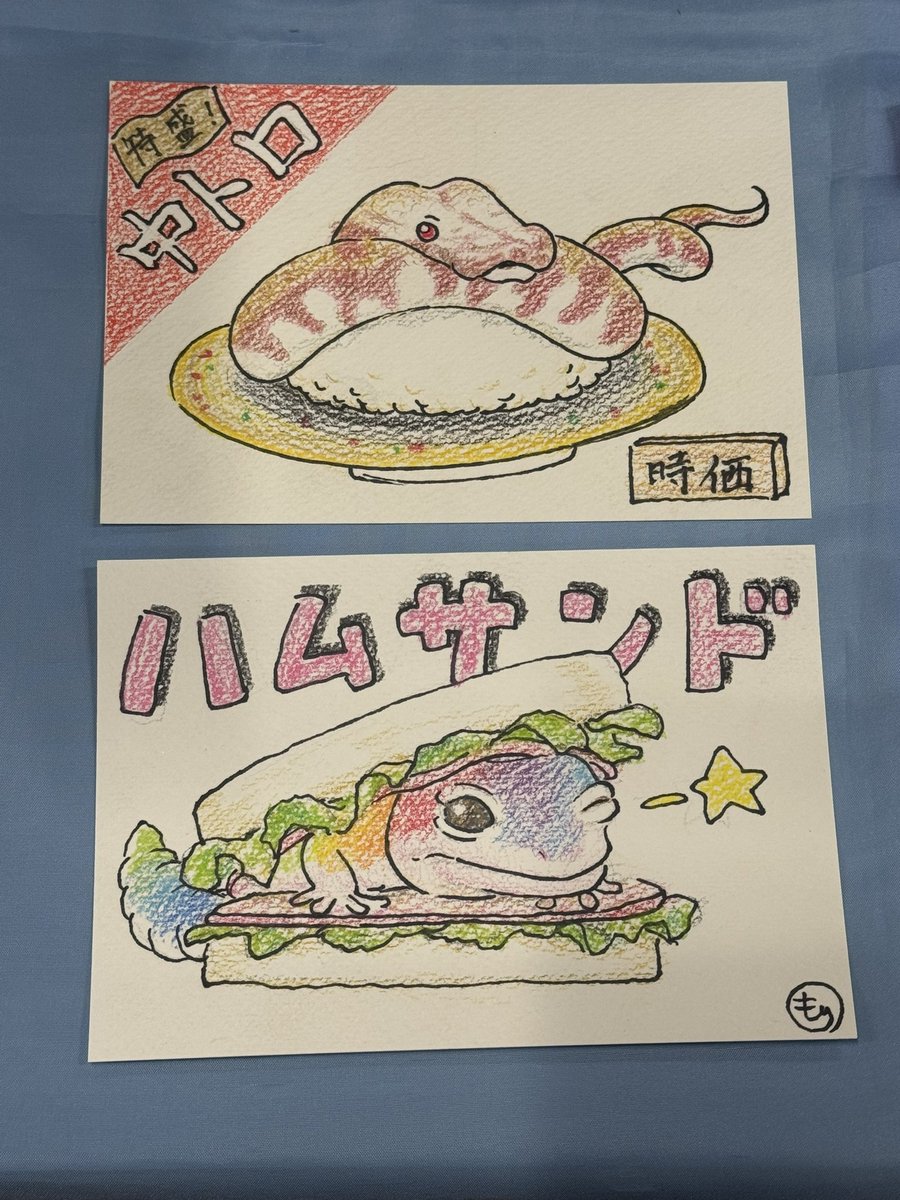 特盛!
中トロ
時価
ハムサンド
もり